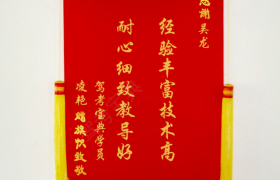 感谢吴龙
经验丰富技术高
耐心细致教导好
驾考宝典学员
凌艳
致敬